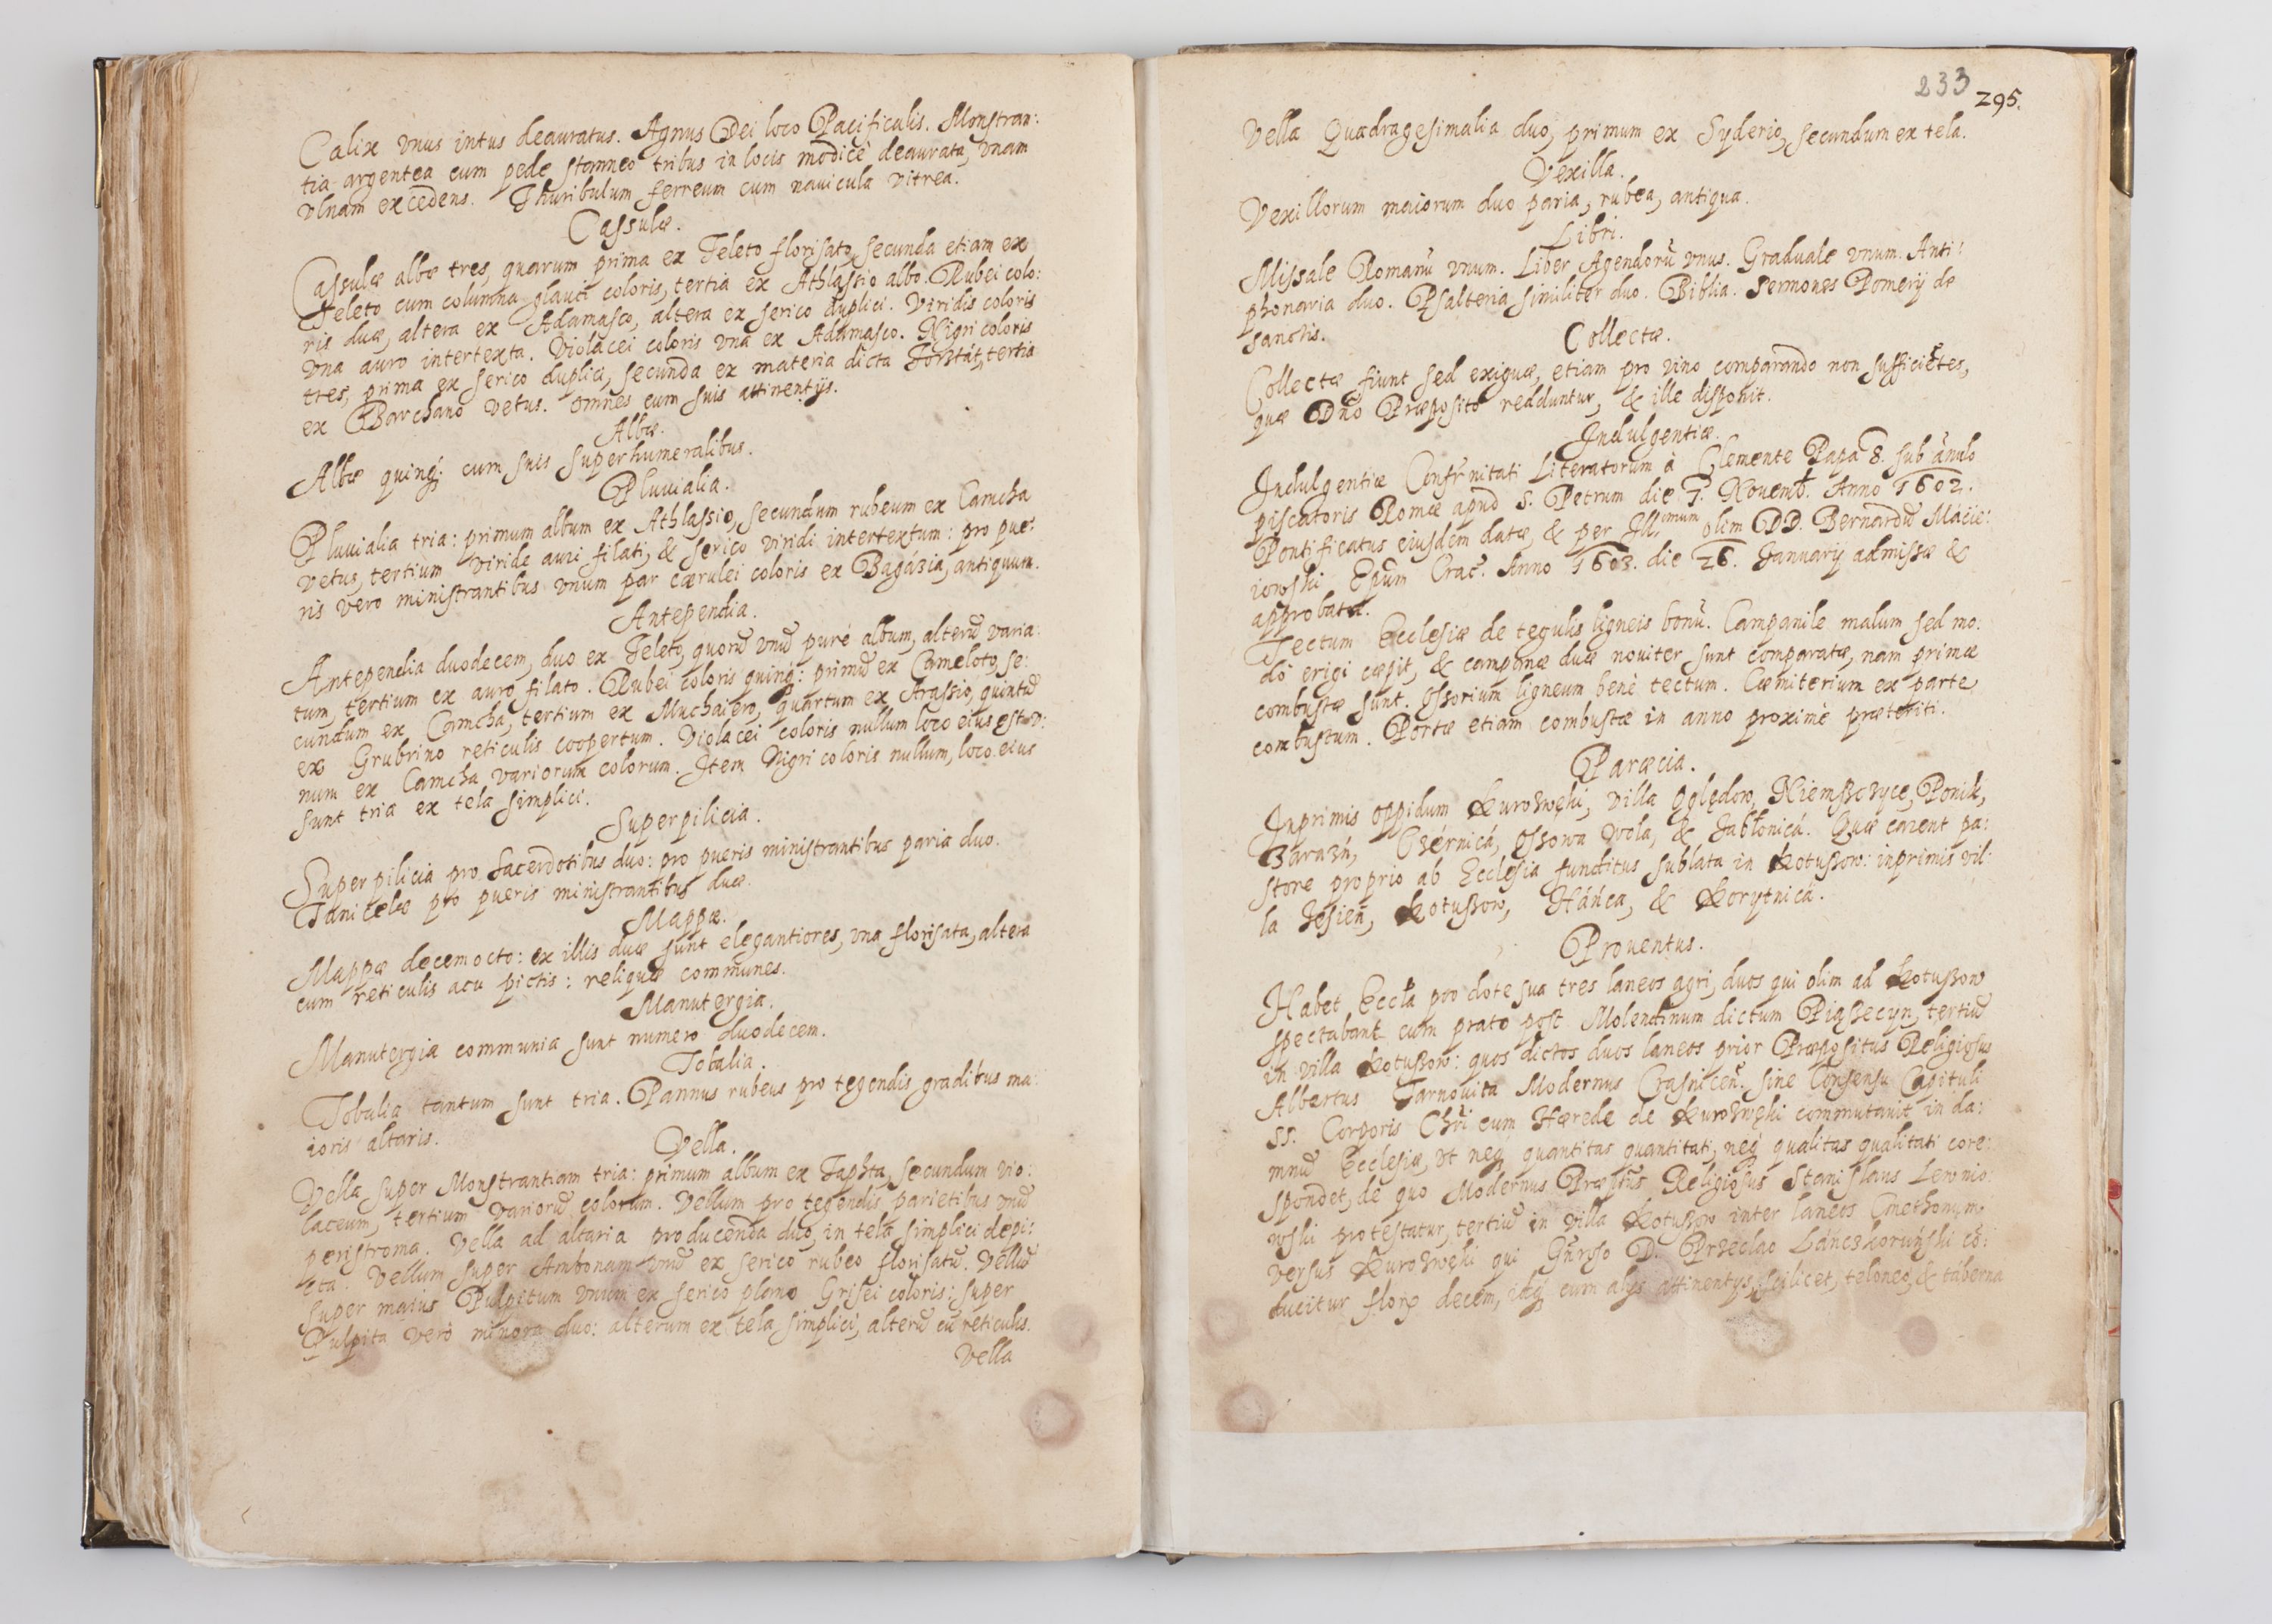 Calix vnus intus deauratus. Agnus Dei loco Pacificulis. Monstran:
tia argentea cum pede stanneo tribus in locis modicè deaurata, vnam
vlnam excedens. Thuribulum ferreum cum nauicula vitrea.
Cassulæ.
Cassulæ albæ tres, quarum prima ex Teleto florisato, secunda etiam ex
Teleto cum columna glauci coloris, tertia ex Athlassio albo. Rubei colo:
ris duæ, altera ex Adamasco, altera ex serico duplici. Viridis coloris
vna auro intertexta. Violacei coloris vna ex Adamasco. Nigri coloris
tres, prima ex serico duplici, secunda ex materia dicta tertia
ex Barchano vetus. omnes cum suis attinentijs.
Albæ.
Albæ quinq; cum suis superhumeralibus.
Pluuialia.
Pluuialia tria: primum album ex Athlassio, secundum rubeum ex Camcha
vetus, tertium viride auri filati, & serico viridi intertextum: pro pue:
ris vero ministrantibus vnum par cærulei coloris ex Bagázia, antiquum.
Antependia.
Antependia duodecem, duo ex Teleto, quorū vnū purè album, alterū varia:
tum, tertium ex auro filato. Rubei coloris quinq: primū ex Cameloto, se:
cundum ex Camcha, tertium ex Muchaiero, quartum ex Arassio, quintū
ex Grubrino reticulis coopertum. Violacei coloris nullum loco eius est v:
num ex Camcha variorum colorum. Item Nigri coloris nullum, loco eius
sunt tria ex tela simplici.
Superpilicia.
Superpilicia pro sacerdotibus duo: pro pueris ministrantibus paria duo.
Tunicelæ pro pueris ministrantibus duæ.
Mappæ.
Mappæ decemocto: ex illis duæ sunt elegantiores, vna florisata, altera
cum reticulis acu pictis: reliquæ communes.
Manutergia.
Manutergia communia sunt numero duodecem.
Tobalia.
Tobalia tantum sunt tria. Pannus rubeus pro tegendis gradibus ma:
ioris altaris.
Vella.
Vella super Monstrantiam tria: primum album ex Taphta, secundum vio:
laceum, tertium variorū colorum. Vellum pro tegendis parietibus vnū
peristroma. Vella ad altaria producenda duo, in tela simplici depi:
cta. Vellum super Ambonam vnū ex serico rubeo florisatū. Vellū
super maius Pulpetum vnum ex serico plano Grisei coloris: super
Pulpita verò minora duo: alterum ex tela simplici, alterū cū reticulis.
Vella
233
295.
Vella Quadragesimalia duo, primum ex Syderio, secundum ex tela.
Vexilla.
Vexillorum maiorum duo paria, rubea, antiqua.
Libri.
Missale Romanū vnum. Liber Agendorū vnus. Graduale vnum. Anti:
phonaria duo. Psalteria similiter duo. Biblia. Sermones Pomerij de
sanctis.
Collectæ.
Collectæ fiunt sed exiguæ, etiam pro vino comparando non sufficiẽtes,
quæ Dño Præposito redduntur, & ille disponit.
Indulgentiæ.
Indulgentiæ Confrnitati Literatorum à Clemente Papa 8. sub anulo
piscatoris Romæ apud S. Petrum die 7. Nouemb. Anno 1602.
Pontificatus eiusdem datæ, & per Ill.imum olim DD. Bernardū Mácie:
iowski Epūm Crac. Anno 1603. die 26. Januarij admissæ &
approbatæ.
Tectum Ecclesiæ de tegulis ligneis bonū. Campanile malum sed mo:
dò erigi cæpit, & campanæ duæ nouiter sunt comparatæ, nam primæ
combustæ sunt. Ossorium ligneum benè tectum. Cæmiterium ex parte
combustum. Portæ etiam combustæ in anno proximè præteriti.
Paræcia.
Inprimis oppidum Kurozwęki, villa Oględow, Niemśczyce, Ponik,
Zarazń, Czérnicá, Ossowa wola, & Jabłonicá. Quæ carent pa:
store proprio ab Ecclesia funditus sublata in Kotuszow: inprimis vil:
la Jesień, Kotuszow, Háńca, & Korytnicá.
Prouentus.
Habet Eccla pro dote sua tres laneos agri, duos qui olim ad Kotuszow
spectabant cum prato post Molendinum dictum Piąssecyn, tertiū
in villa Kotuszow: quos dictos duos laneos prior Præpositus Religiosus
Albertus Tarnouita Modernus Crasniceñ. sine Consensu Capituli
SS. Corporis Chri cum Hærede de Kurozwęki commutauit in da:
mnū Ecclesiæ, vt neq quantitas quantitati, neq qualitas qualitati core:
spondet, de quo Modernus Præptus Religiosus Stanislaus Lewnio:
wski protestatur, tertiū in villa Kotuszow inter laneos Cmethonum
versus Kurozwęki qui Gñroso D. Przeclao Láncskoruński cō:
ducitur flore decem, idq cum alijs attinentijs, scilicet, teloneo, & taberna